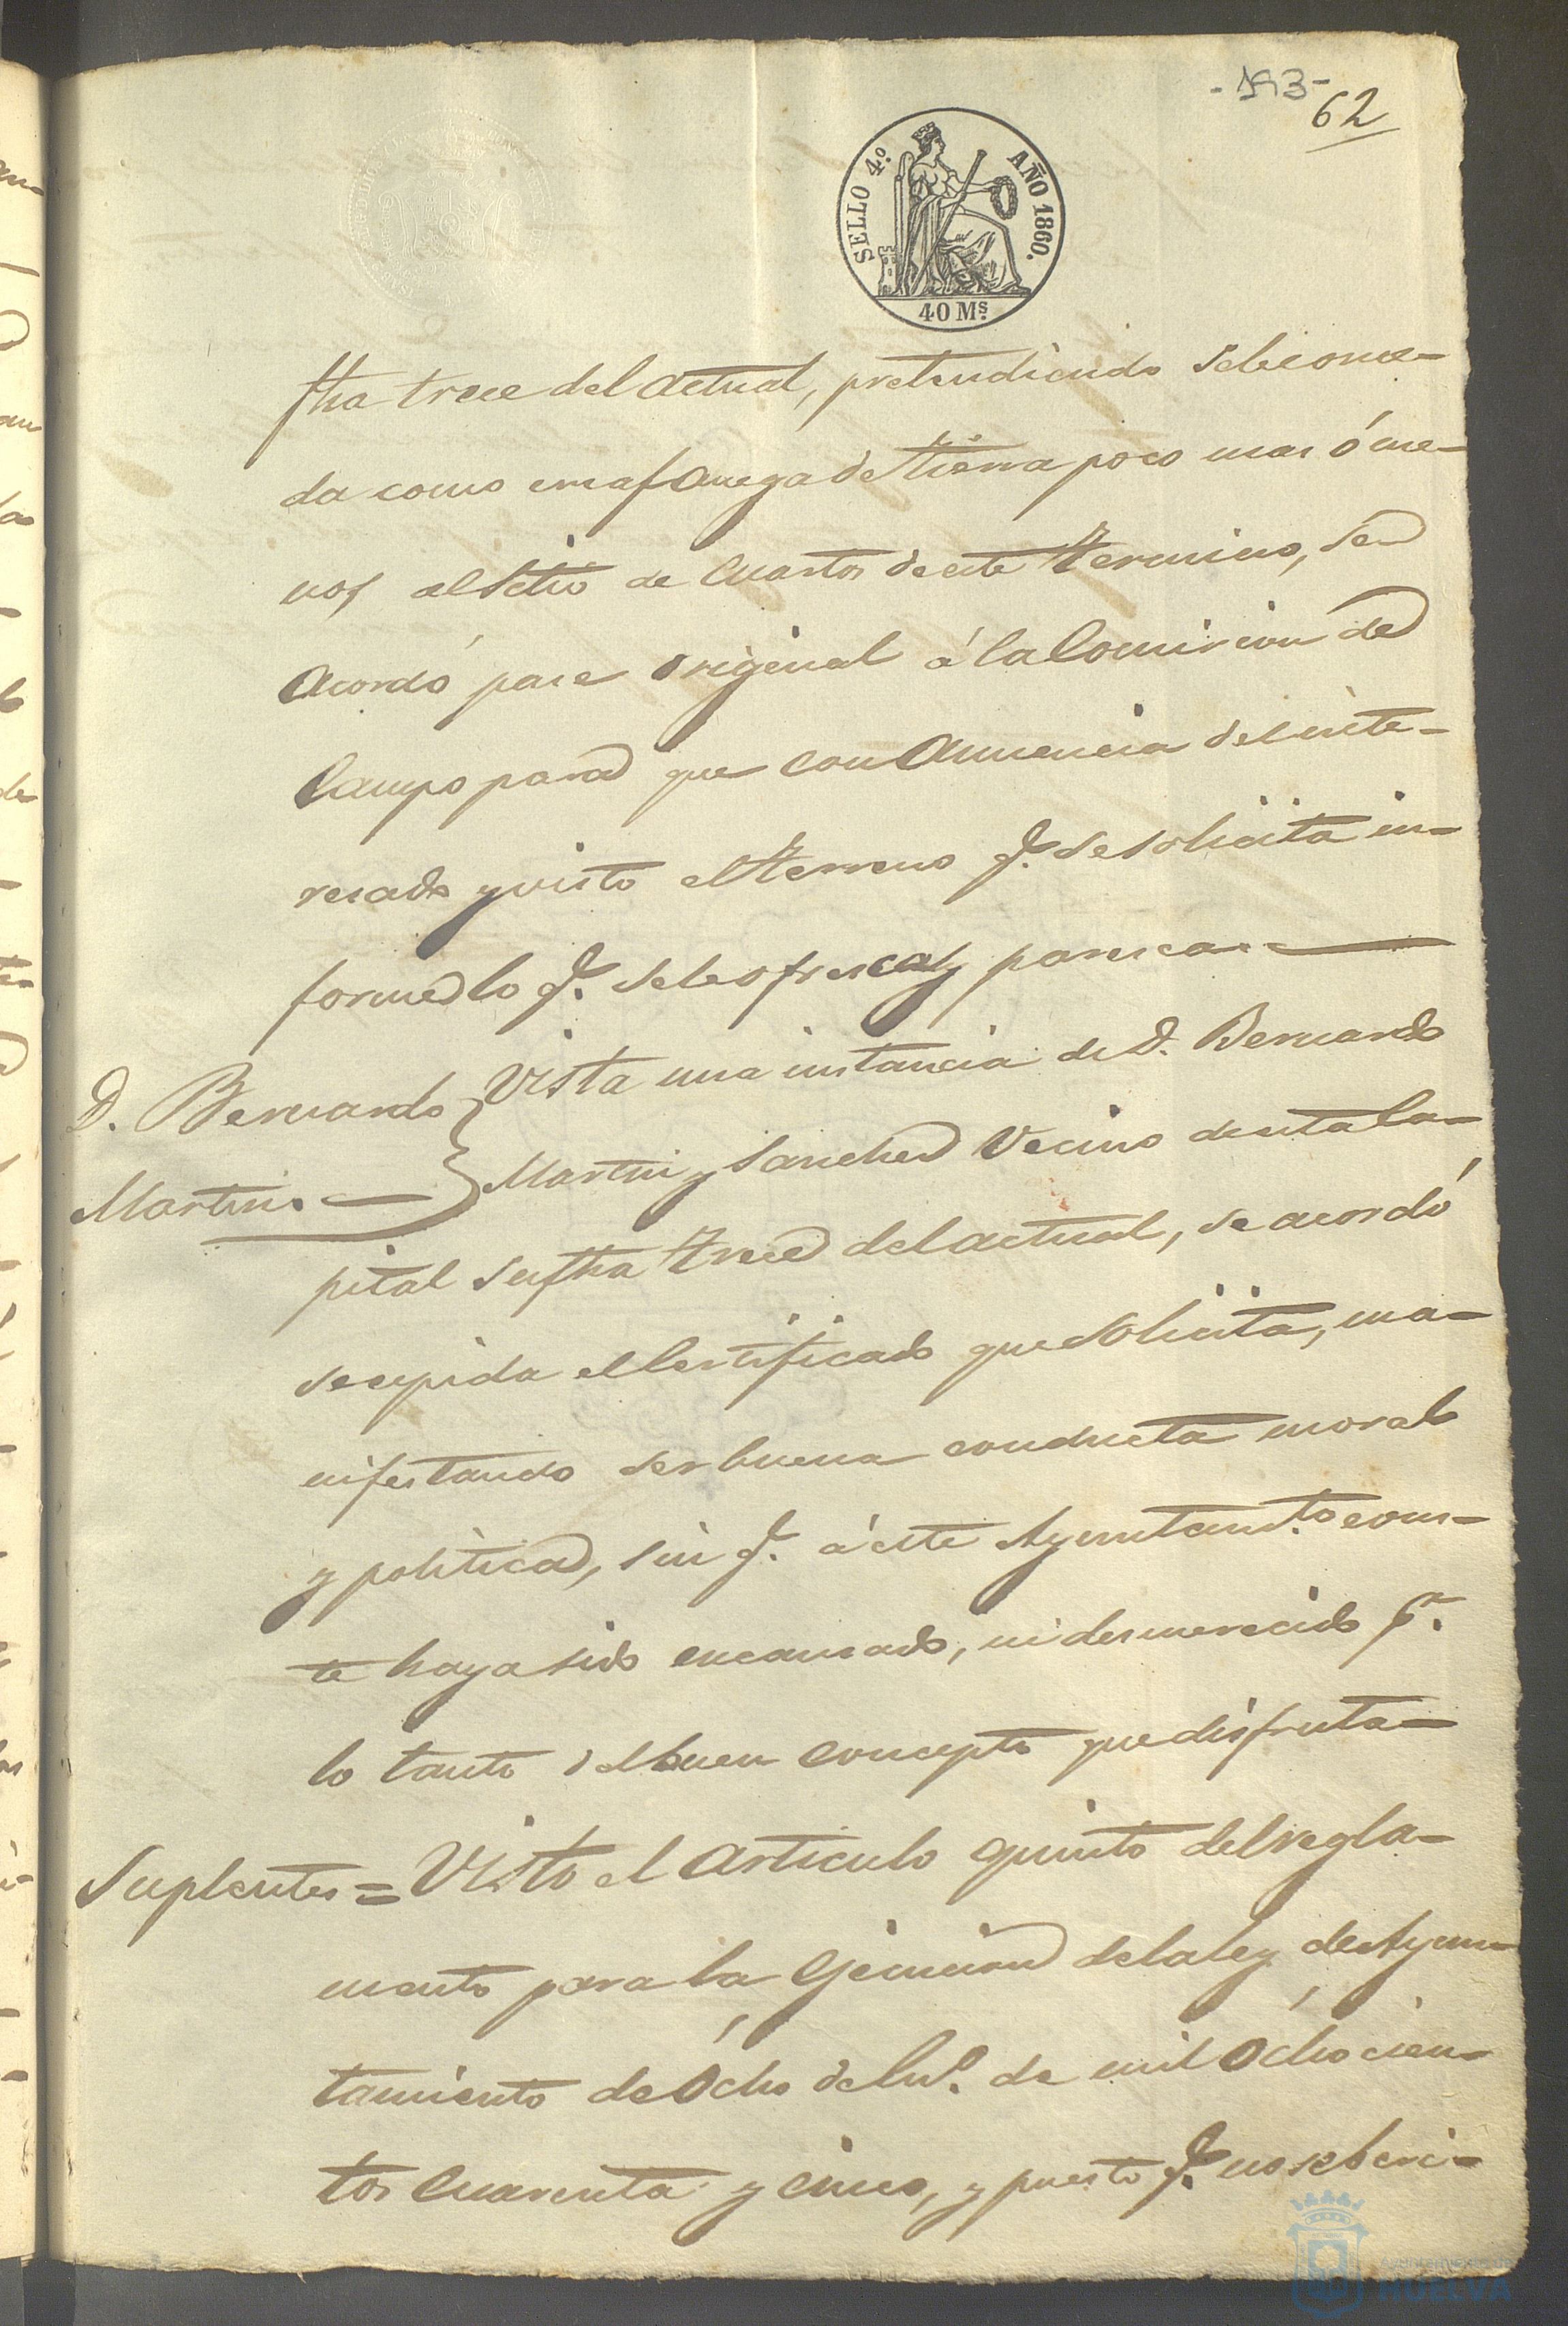 -193-
62
SELLO 4.º AÑO 1860.
40 Ms.
fha trece del actual, pretendiendo sele conce-
da como una fanega de tierra poco mas ó me-
nos al sitio de Cuartos de este termino, se
acordó pase original á la Comision de
Campo para que con anuencia del inte-
resado y visto el terreno q.e se solicita in-
forme lo q.e sele ofresca y paresca
D. Bernardo
Martin.
Vista una instancia de D. Bernardo
Martin y Sanchez vecino de esta Ca-
pital su fha trece del actual, se acordó
se espida el Certificado que solicita, ma-
nifestando ser buena conducta moral
y politica, sin q.e á este Ayuntam.to cons-
te haya sido encausado, ni desmerecido p.r
lo tanto del buen concepto que disfruta
Suplentes = Visto el articulo quinto del regla-
mento para la Ejecucion de la ley de Ayun-
tamiento de Ocho de En.º de mil Ochocien-
tos Cuarenta y cinco, y puesto q.e no se
Ayuntamiento de
HUELVA